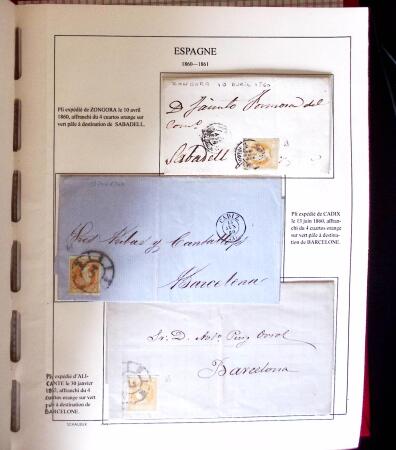 ESPAGNE
1860—1861
ZONGORA 10 AVRIL 1860
Pli expédié de ZONGORA le 10 avril
1860, affranchi du 4 cuartos orange sur
vert pâle à destination de SABADELL.
D. Jainto
del
Com.
Sabadell
CADIZ
Pli expédié de CADIX
le 13 juin 1860, affran-
chi du 4 cuartos orange
sur vert pâle à destina-
tion de BARCELONE.
Sres Ribas y Cantallops
Barcelona
Sr. D. Anto. Puig Orriol
Barcelona
Pli expédié d'ALI-
CANTE le 30 janvier
1861, affranchi du 4
cuartos orange sur vert
pâle à destination de
BARCELONE.
SCHAUBEK